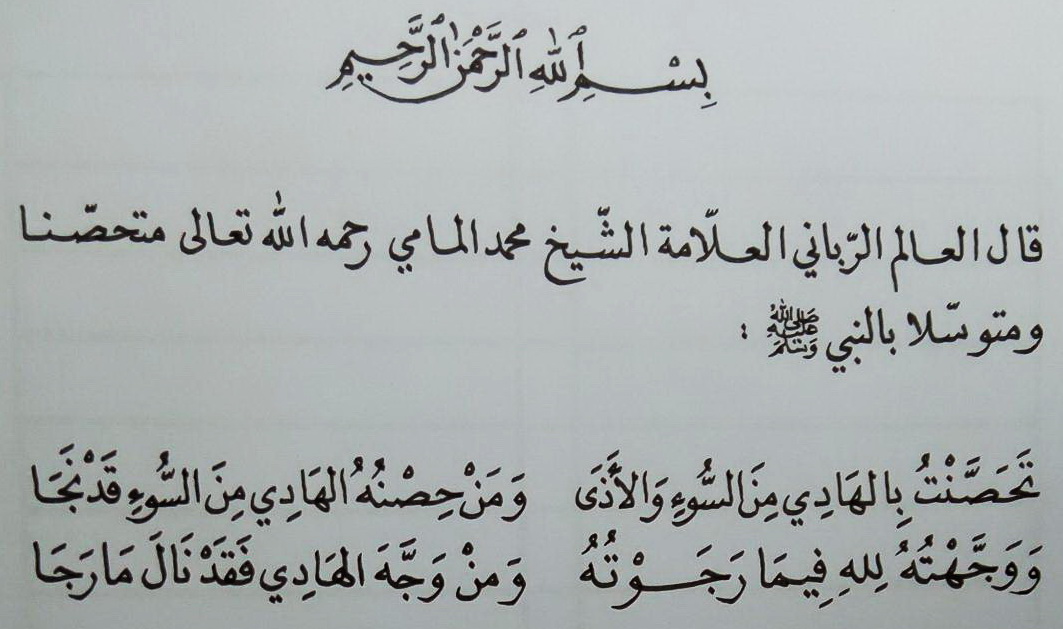 بِسْمِ ٱللَّهِ ٱلرَّحْمَٰنِ ٱلرَّحِيمِ
قال العالم الرّباني العلّامة الشّيخ محمد المامي رحمه الله تعالى متحصّنا
ومتوسّلا بالنبي ﷺ :
تَحَصَّنْتُ بِالهَادِي مِنَ السُّوءِ وَالأَذَى وَمَنْ حِصْنُهُ الهَادِي مِنَ السُّوءِ قَدْ نَجَا
وَوَجَّهْتُهُ لِلهِ فِيمَا رَجَوْتُهُ وَمَنْ وَجَّهَ الهَادِي فَقَدْ نَالَ مَا رَجَا